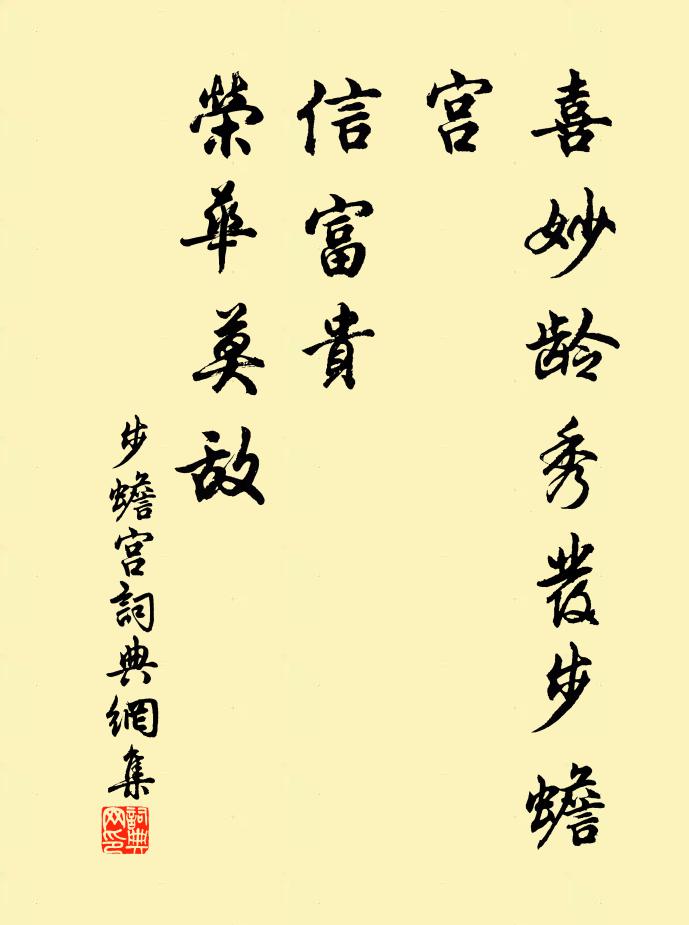 喜妙龄秀發步蟾
宫
信富貴
榮華莫敌
步蟾宫詞典網集
詞典網印